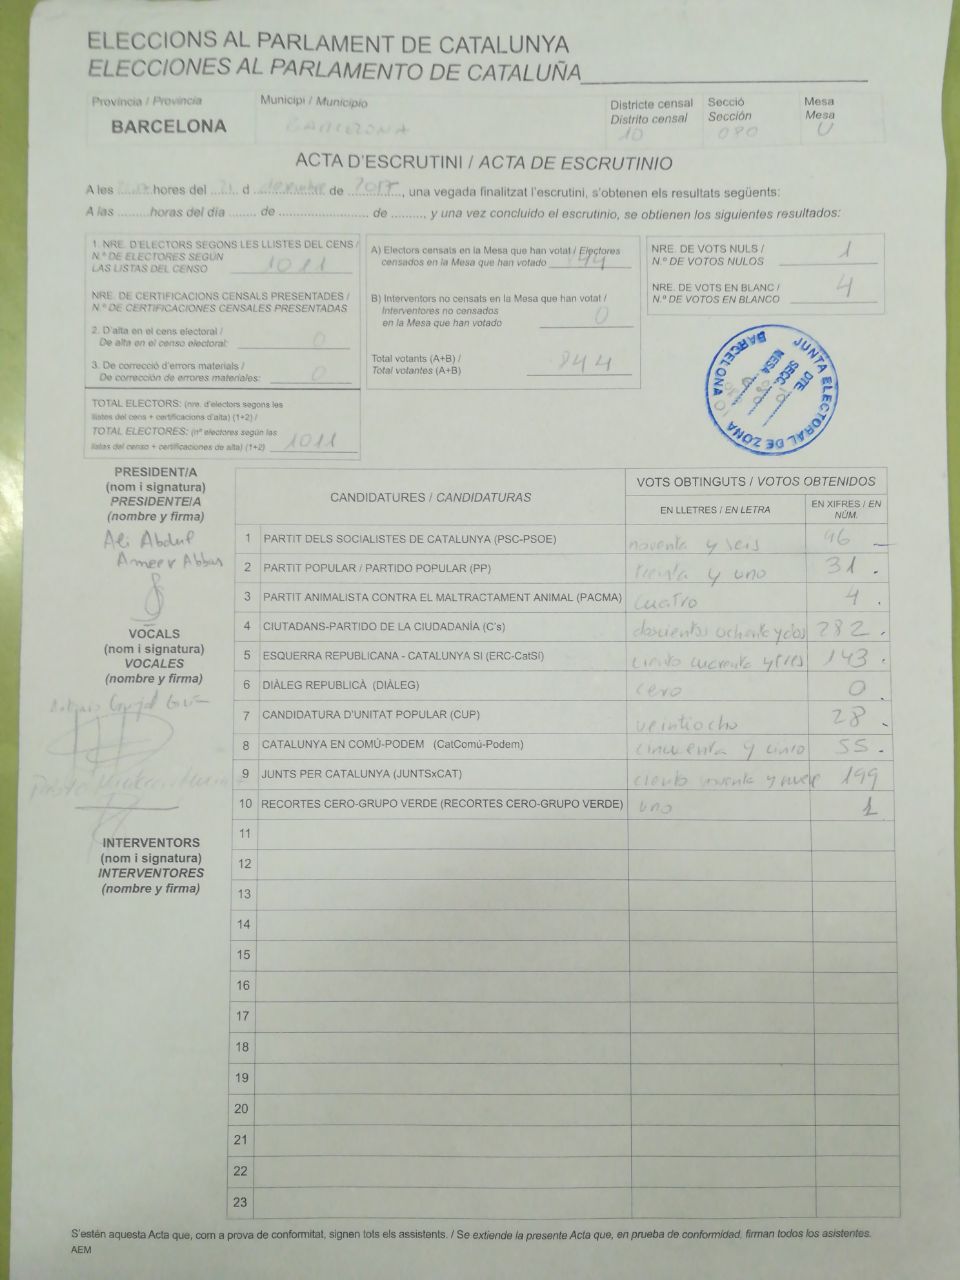 ELECCIONS AL PARLAMENT DE CATALUNYA
ELECCIONES AL PARLAMENTO DE CATALUÑA
Província / Provincia
BARCELONA
Municipi / Municipio
BARCELONA
Districte censal
Distrito censal
10
Secció
Sección
080
Mesa
Mesa
U
ACTA D'ESCRUTINI / ACTA DE ESCRUTINIO
A les ........ hores del 21 d diciembre de 2017, una vegada finalitzat l'escrutini, s'obtenen els resultats següents:
A las .........horas del día ....... de ........................ de ........., y una vez concluido el escrutinio, se obtienen los siguientes resultados:
1. NRE. D'ELECTORS SEGONS LES LLISTES DEL CENS /
N.º DE ELECTORES SEGÚN
LAS LISTAS DEL CENSO 1011
NRE. DE CERTIFICACIONS CENSALS PRESENTADES /
N.º DE CERTIFICACIONES CENSALES PRESENTADAS
2. D'alta en el cens electoral /
De alta en el censo electoral: 0
3. De correcció d'errors materials /
De corrección de errores materiales: 0
TOTAL ELECTORS: (nre. d'electors segons les
llistes del cens + certificacions d'alta) (1+2) /
TOTAL ELECTORES: (nº electores según las
listas del censo + certificaciones de alta) (1+2) 1011
A) Electors censats en la Mesa que han votat / Electores
censados en la Mesa que han votado 844
B) Interventors no censats en la Mesa que han votat /
Interventores no censados
en la Mesa que han votado 0
Total votants (A+B) /
Total votantes (A+B) 844
NRE. DE VOTS NULS /
N.º DE VOTOS NULOS 1
NRE. DE VOTS EN BLANC /
N.º DE VOTOS EN BLANCO 4
JUNTA ELECTORAL DE ZONA BARCELONA
DTE. 10
SECC. 080
MESA
PRESIDENT/A
(nom i signatura)
PRESIDENTE/A
(nombre y firma)
Ali Abdul
Ameer Abbas
VOCALS
(nom i signatura)
VOCALES
(nombre y firma)
INTERVENTORS
(nom i signatura)
INTERVENTORES
(nombre y firma)
CANDIDATURES / CANDIDATURAS
VOTS OBTINGUTS / VOTOS OBTENIDOS
EN LLETRES / EN LETRA
EN XIFRES / EN NÚM.
1 PARTIT DELS SOCIALISTES DE CATALUNYA (PSC-PSOE) noventa y seis 96
2 PARTIT POPULAR / PARTIDO POPULAR (PP) treinta y uno 31
3 PARTIT ANIMALISTA CONTRA EL MALTRACTAMENT ANIMAL (PACMA) cuatro 4
4 CIUTADANS-PARTIDO DE LA CIUDADANÍA (C's) doscientos ochenta y dos 282
5 ESQUERRA REPUBLICANA - CATALUNYA SI (ERC-CatSí) ciento cuarenta y tres 143
6 DIÀLEG REPUBLICÀ (DIÀLEG) cero 0
7 CANDIDATURA D'UNITAT POPULAR (CUP) veintiocho 28
8 CATALUNYA EN COMÚ-PODEM (CatComú-Podem) cincuenta y cinco 55
9 JUNTS PER CATALUNYA (JUNTSxCAT) ciento noventa y nueve 199
10 RECORTES CERO-GRUPO VERDE (RECORTES CERO-GRUPO VERDE) uno 1
11
12
13
14
15
16
17
18
19
20
21
22
23
S'estén aquesta Acta que, com a prova de conformitat, signen tots els assistents. / Se extiende la presente Acta que, en prueba de conformidad, firman todos los asistentes.
AEM